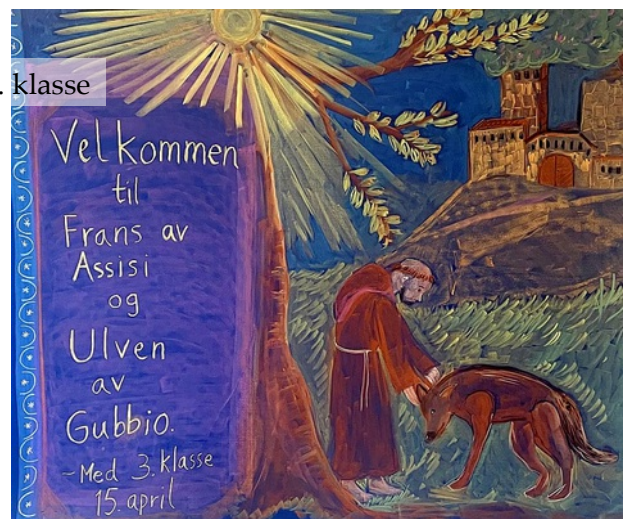 . klasse
Velkommen
til
Frans av
Assisi
og
Ulven
av
Gubbio.
-Med 3. klasse
15. april